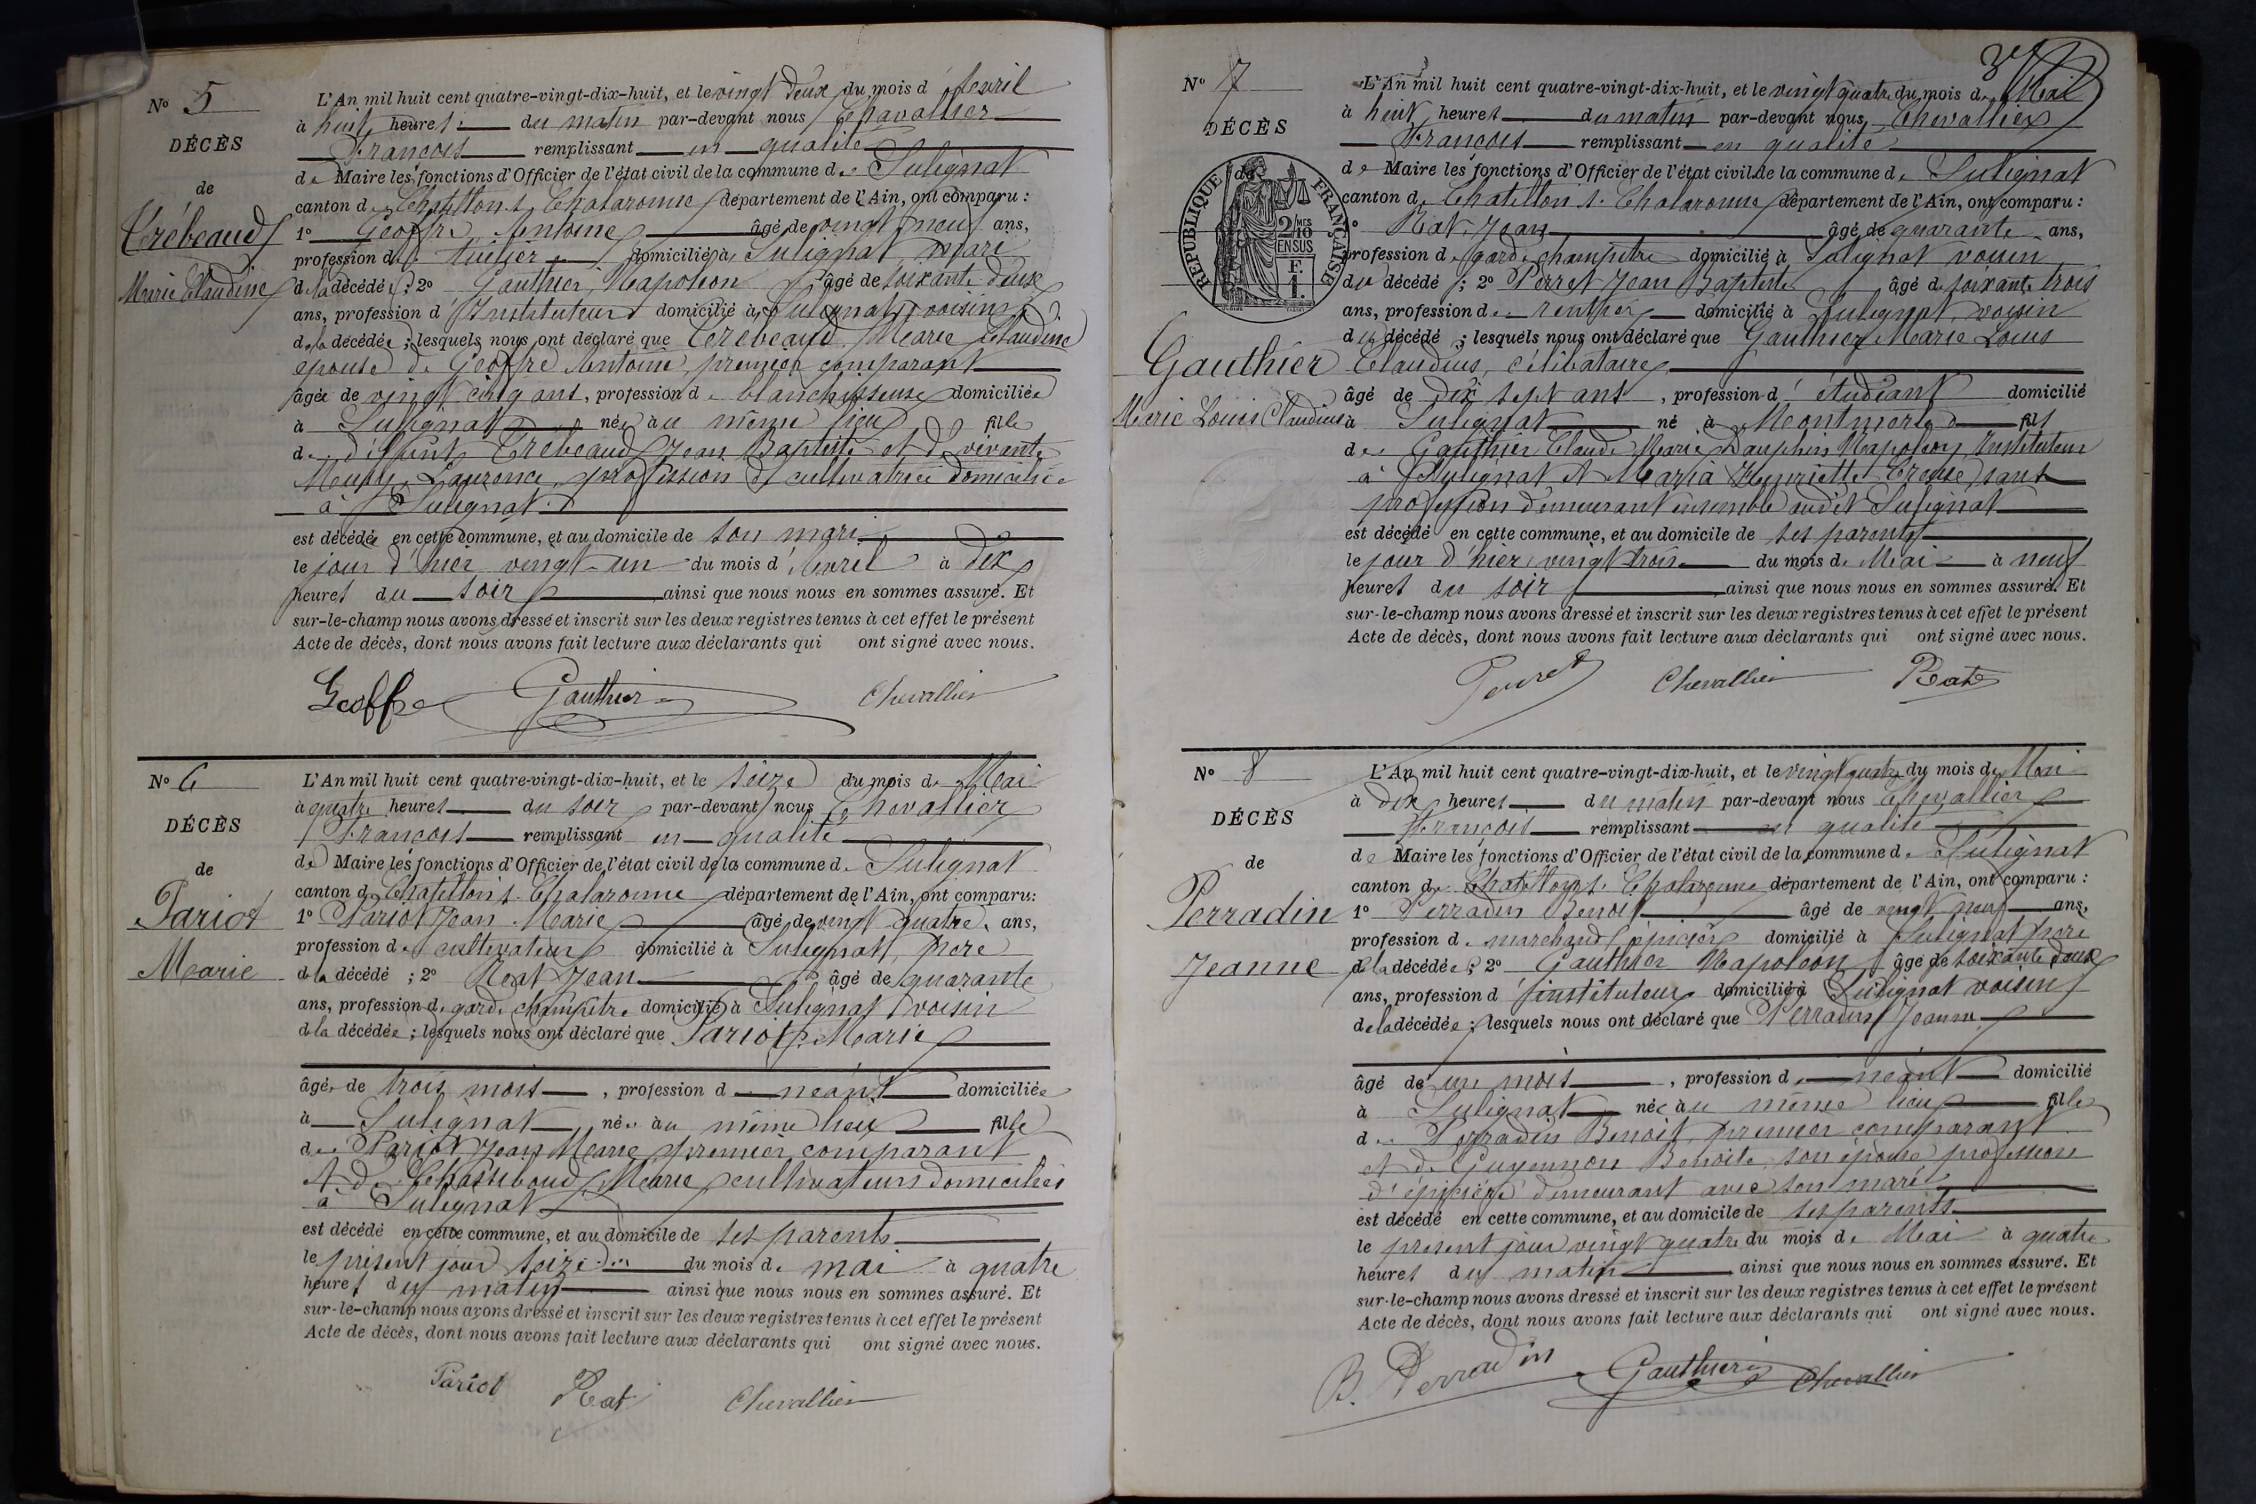 Nº 5
DÉCÈS
de
Trebeaud
Marie Claudine
L'An mil huit cent quatre-vingt-dix-huit, et le vingt deux du mois d'Avril
à huit heures du matin par-devant nous Chavallier
François remplissant en qualité
de Maire les fonctions d'Officier de l'état civil de la commune de Sulignat
canton de Chatillon s. Chalaronne département de l'Ain, ont comparu :
1º Geoffre Antoine âgé de vingt neuf ans,
profession de tuilier domicilié à Sulignat mari
de la décédée ; 2º Gauthier Napoléon âgé de soixante deux
ans, profession d'Instituteur domicilié à Sulignat voisin
de la décédée ; lesquels nous ont déclaré que Trebeaud Marie Claudine
épouse de Geoffre Antoine, premier comparant
âgée de vingt cinq ans, profession de blanchisseuse domiciliée
à Sulignat née au même lieu fille
de défunt Trebeaud Jean Baptiste et de vivante
Laurence, profession de cultivatrice domiciliée
à Sulignat
est décédée en cette commune, et au domicile de son mari
le jour d'hier vingt-un du mois d'Avril à dix
heures du soir ainsi que nous nous en sommes assuré. Et
sur-le-champ nous avons dressé et inscrit sur les deux registres tenus à cet effet le présent
Acte de décès, dont nous avons fait lecture aux déclarants qui ont signé avec nous.
Geoffre Gauthier Chevallier
Nº 6
DÉCÈS
de
Pariot
Marie
L'An mil huit cent quatre-vingt-dix-huit, et le seize du mois de Mai
à quatre heures du soir par-devant nous Chevallier
François remplissant en qualité
de Maire les fonctions d'Officier de l'état civil de la commune de Sulignat
canton de Chatillon s. Chalaronne département de l'Ain, ont comparu :
1º Pariot Jean Marie âgé de vingt quatre ans,
profession de cultivateur domicilié à Sulignat, père
de la décédé ; 2º Reat Jean âgé de quarante
ans, profession de garde champêtre domicilié à Sulignat voisin
de la décédée ; lesquels nous ont déclaré que Pariot Marie
âgée de trois mois, profession de néant domiciliée
à Sulignat née au même lieu fille
de Pariot Jean Marie premier comparant
et de Marie cultivateurs domiciliés
à Sulignat
est décédé en cette commune, et au domicile de ses parents
le présent jour seize du mois de mai à quatre
heures du matin ainsi que nous nous en sommes assuré. Et
sur-le-champ nous avons dressé et inscrit sur les deux registres tenus à cet effet le présent
Acte de décès, dont nous avons fait lecture aux déclarants qui ont signé avec nous.
Pariot Reat Chevallier
Nº 7
DÉCÈS
de
RÉPUBLIQUE FRANÇAISE
Gauthier
Marie Louis Claudius
L'An mil huit cent quatre-vingt-dix-huit, et le vingt quatre du mois de Mai
à huit heures du matin par-devant nous Chevallier
François remplissant en qualité
de Maire les fonctions d'Officier de l'état civil de la commune de Sulignat
canton de Chatillon s. Chalaronne département de l'Ain, ont comparu :
1º Reat Jean âgé de quarante ans,
profession de garde champêtre domicilié à Sulignat voisin
du décédé ; 2º Perret Jean Baptiste âgé de soixante trois
ans, profession de rentier domicilié à Sulignat, voisin
du décédé ; lesquels nous ont déclaré que Gauthier Marie Louis
Claudius, célibataire
âgé de dix sept ans, profession d'étudiant domicilié
à Sulignat né à Montmerle fils
de Gauthier Claude Marie Dauphin Napoléon, Instituteur
à Sulignat et Maria Henriette Creuse, sans
profession demeurant ensemble audit Sulignat
est décédé en cette commune, et au domicile de ses parents
le jour d'hier vingt trois du mois de Mai à neuf
heures du soir ainsi que nous nous en sommes assuré. Et
sur-le-champ nous avons dressé et inscrit sur les deux registres tenus à cet effet le présent
Acte de décès, dont nous avons fait lecture aux déclarants qui ont signé avec nous.
Perret Chevallier Reat
Nº 8
DÉCÈS
de
Perradin
Jeanne
L'An mil huit cent quatre-vingt-dix-huit, et le vingt quatre du mois de Mai
à dix heures du matin par-devant nous Chevallier
François remplissant en qualité
de Maire les fonctions d'Officier de l'état civil de la commune de Sulignat
canton de Chatillon s. Chalaronne département de l'Ain, ont comparu :
1º Perradin Benoit âgé de vingt neuf ans,
profession de marchand épicier domicilié à Sulignat père
de la décédée ; 2º Gauthier Napoléon âgé de soixante deux
ans, profession d'instituteur domicilié à Sulignat voisin
de la décédée ; lesquels nous ont déclaré que Perradin Jeanne
âgé de un mois, profession de néant domicilié
à Sulignat née au même lieu fille
de Perradin Benoit, premier comparant
et de Guyennon Benoite, son épouse profession
d'épicière demeurant avec son mari
est décédé en cette commune, et au domicile de ses parents
le présent jour vingt quatre du mois de Mai à quatre
heures du matin ainsi que nous nous en sommes assuré. Et
sur-le-champ nous avons dressé et inscrit sur les deux registres tenus à cet effet le présent
Acte de décès, dont nous avons fait lecture aux déclarants qui ont signé avec nous.
B. Perradin Gauthier Chevallier